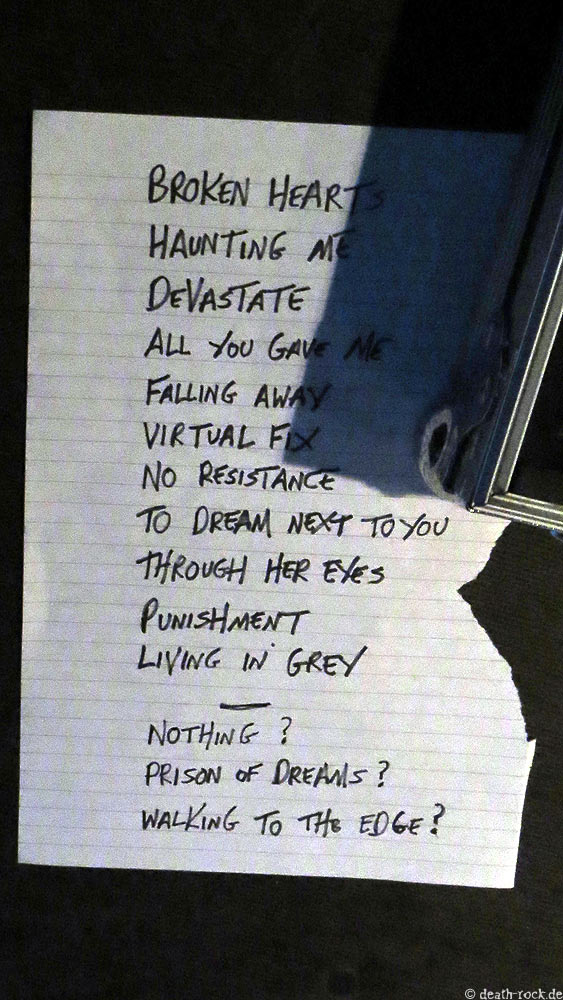 BROKEN HEARTS
HAUNTING ME
DEVASTATE
ALL YOU GAVE ME
FALLING AWAY
VIRTUAL FIX
NO RESISTANCE
TO DREAM NEXT TO YOU
THROUGH HER EYES
PUNISHMENT
LIVING IN GREY
NOTHING ?
PRISON OF DREAMS ?
WALKING TO THE EDGE ?
© death-rock.de